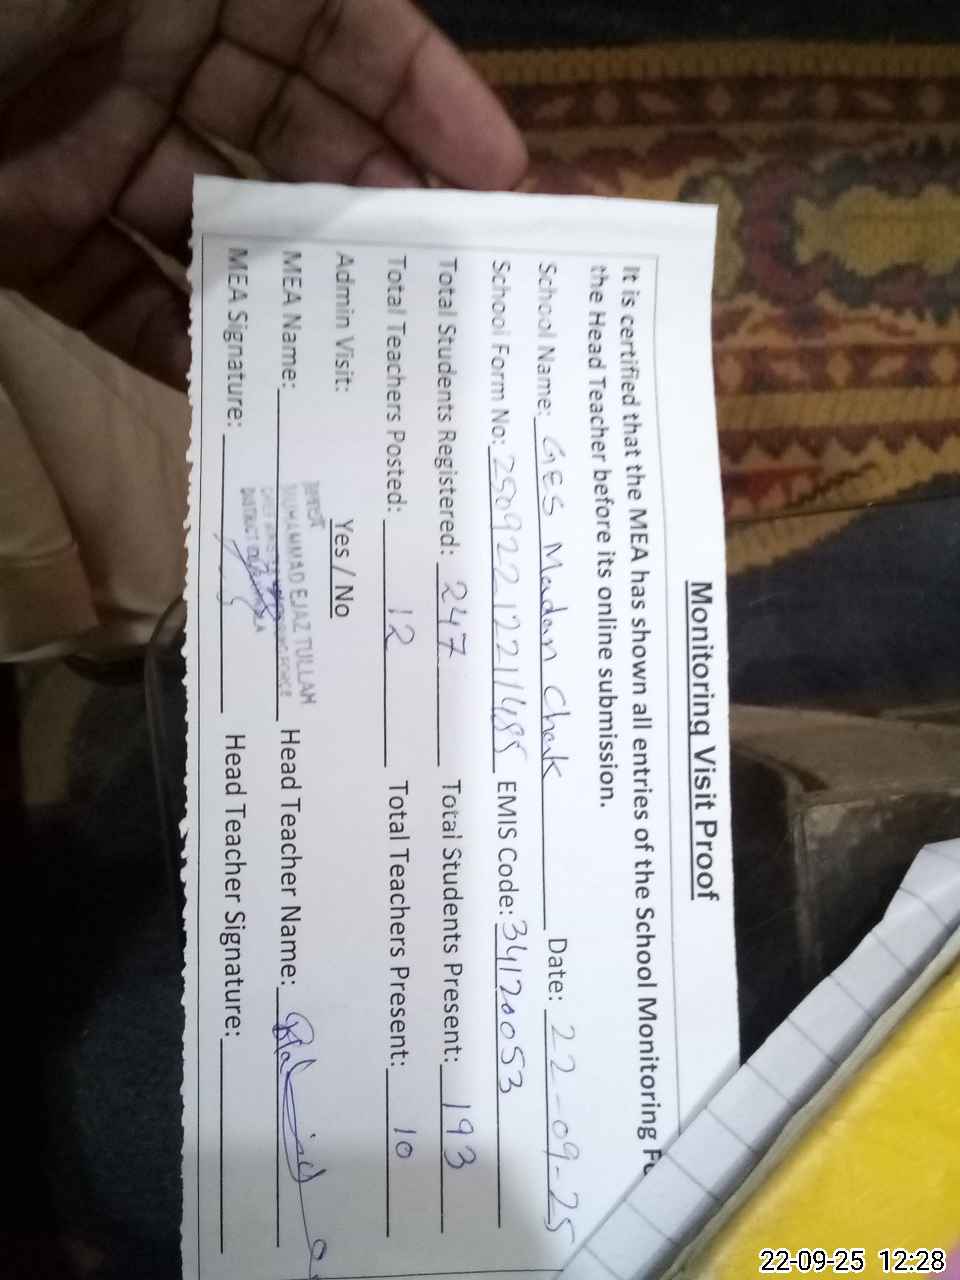 Monitoring Visit Proof
It is certified that the MEA has shown all entries of the School Monitoring Fo
the Head Teacher before its online submission.
School Name: GES Mandan Chak Date: 22-09-25
School Form No: EMIS Code: 34120053
Total Students Registered: 247 Total Students Present: 193
Total Teachers Posted: 12 Total Teachers Present: 10
Admin Visit: Yes / No
MEA Name: MUHAMMAD EJAZ TULLAH Head Teacher Name:
MEA Signature: Head Teacher Signature:
22-09-25 12:28